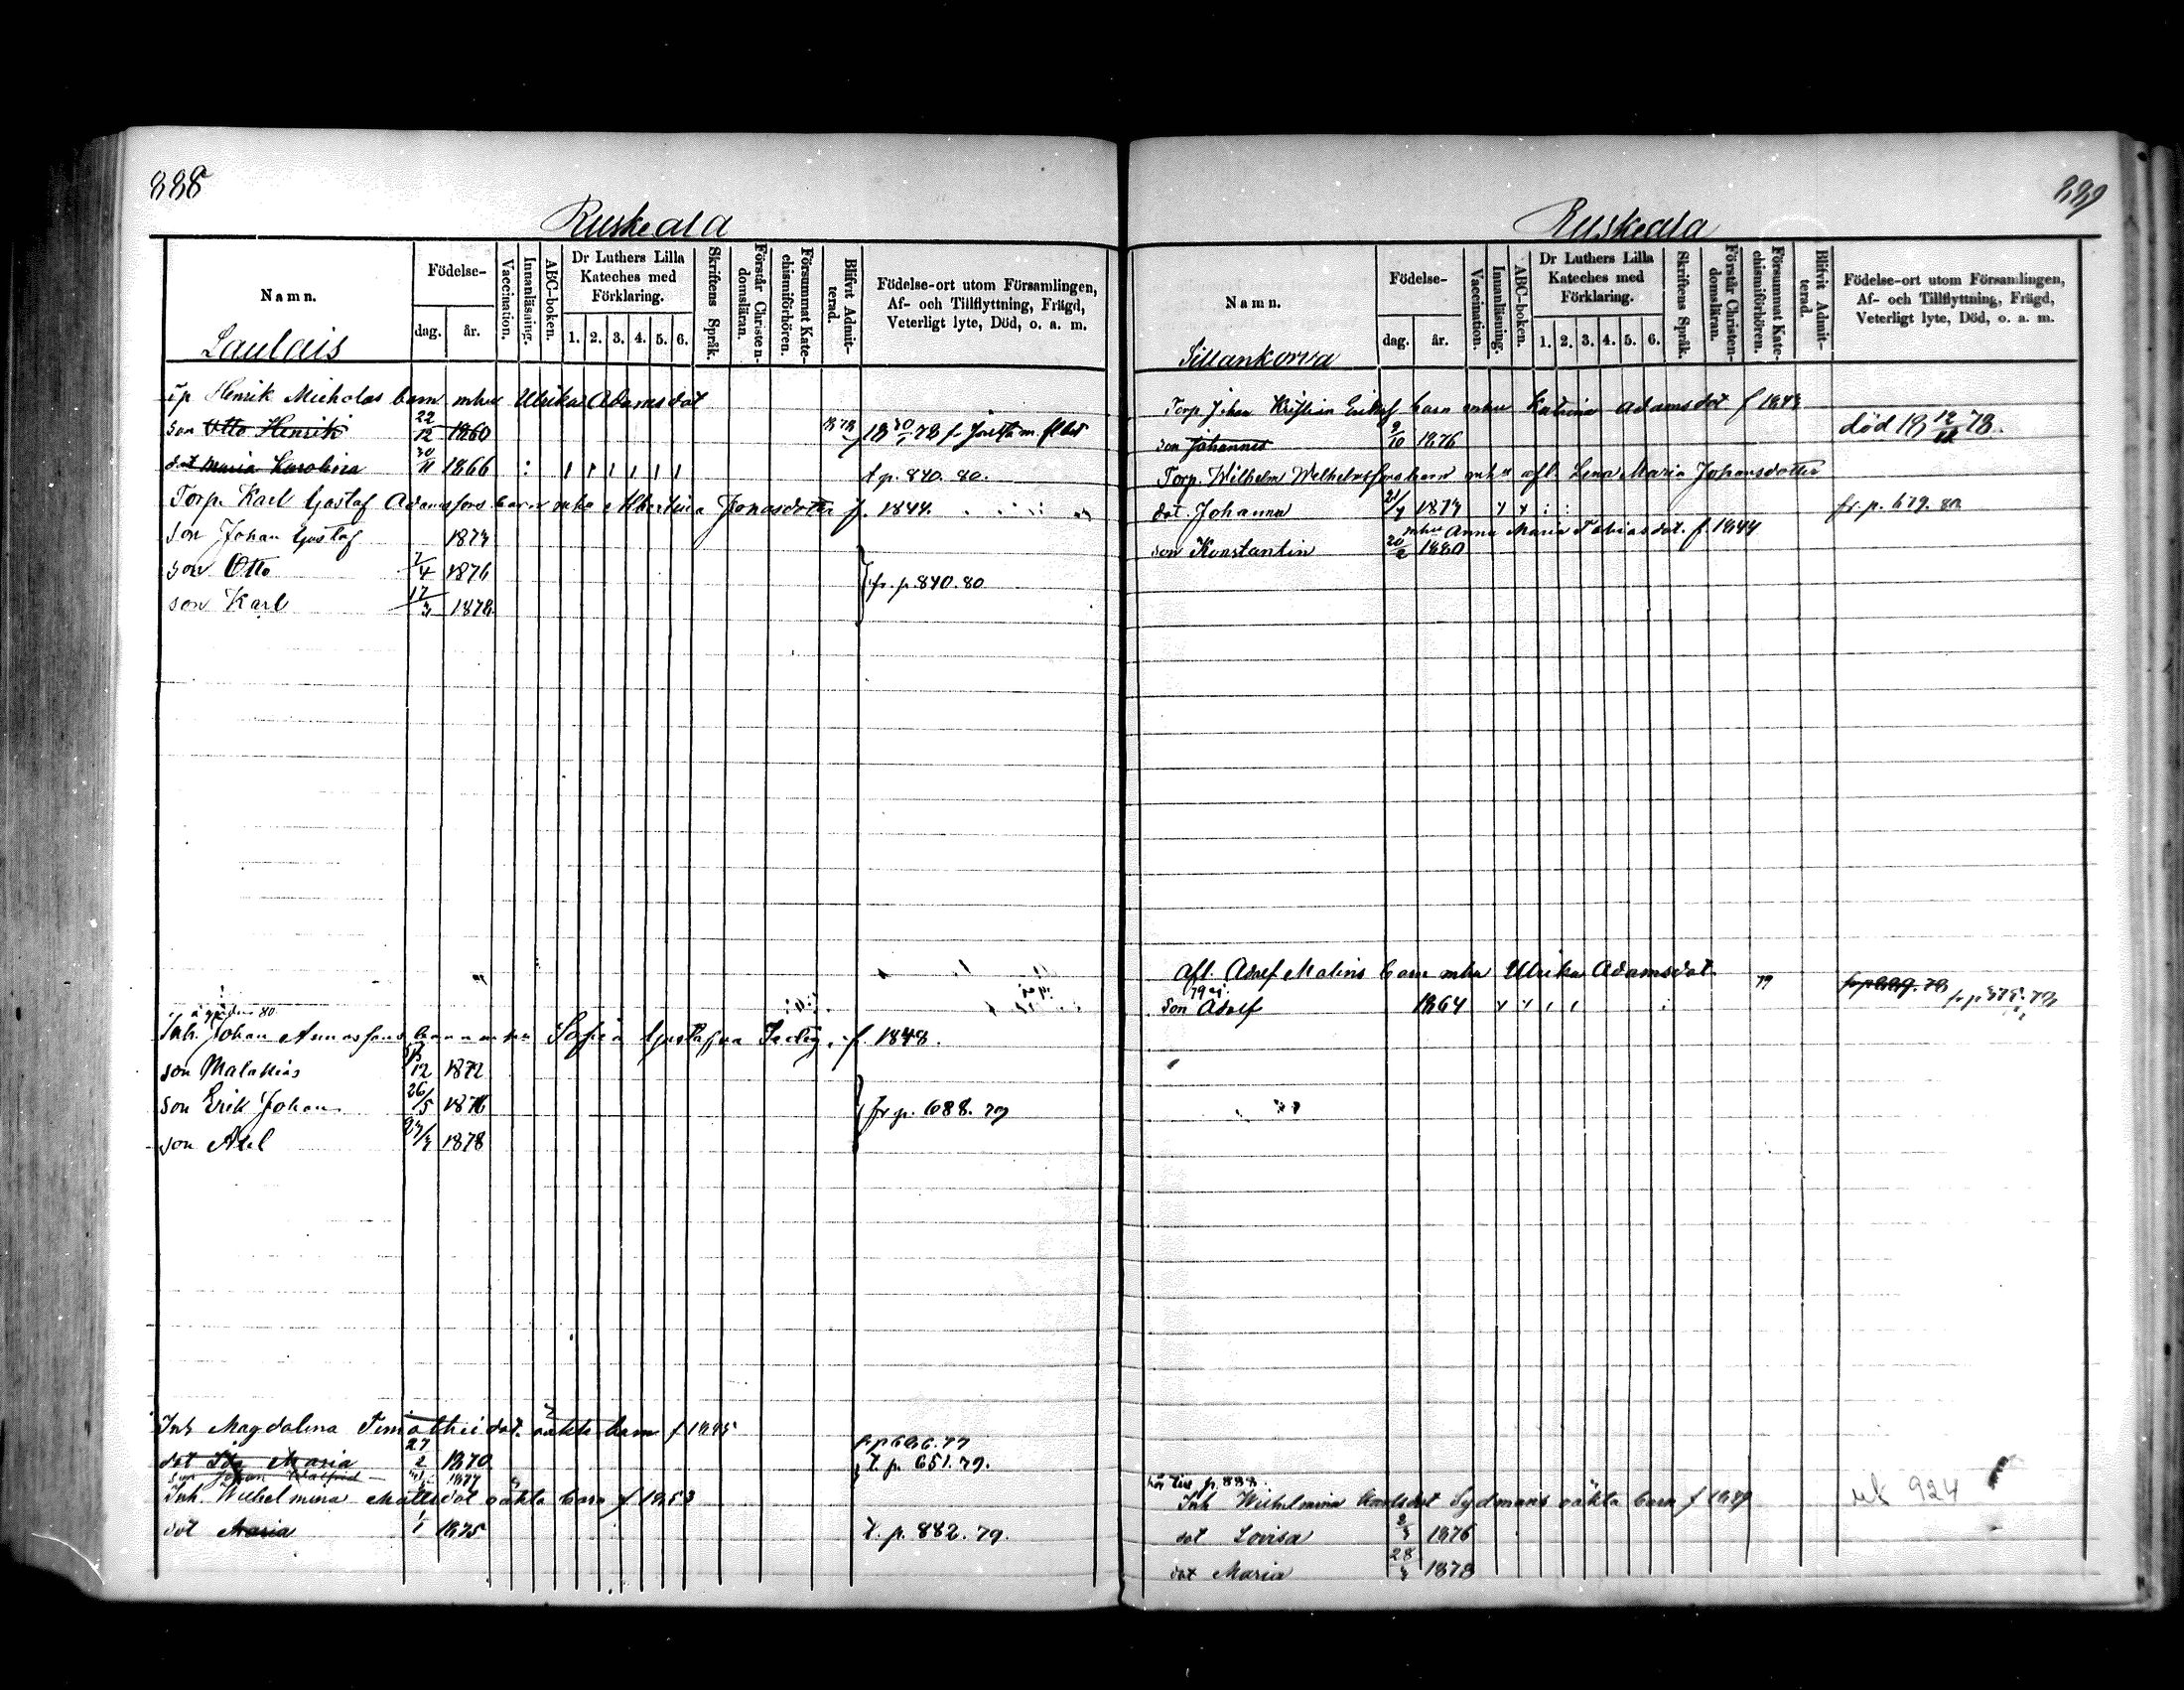 888
Ruskeala
Namn.
Födelse-
dag.
år.
Vaccination.
Innanläsning.
ABC-boken.
Dr Luthers Lilla
Kateches med
Förklaring.
1. 2. 3. 4. 5. 6.
Skriftens Språk.
Förstår Christen-
domsläran.
Försummat Kate-
chismiförhören.
Blifvit Admit-
terad.
Födelse-ort utom Församlingen,
Af- och Tillflyttning, Frägd,
Veterligt lyte, Död, o. a. m.
Laulais
ip Henrik Micholas barn mhu Ulrika Adamsdot
son Otto Henrik 22/12 1860 1878
dot Maria Karolina 30/11 1866 t p. 840. 80.
Torp. Karl Gustaf Adamsfons barn mhu Albertina Jonasdotter f. 1844.
son Johan Gustaf 1873
son Otto 7/4 1876 fr. p. 840. 80
son Karl 17/3 1878
80
Inh. Johan Annosfons barn m hu Sofia Gustafva f. 1848.
son Malakias 12 1872
son Erik Johan 26/5 1876 fr p. 688. 79
son Axel 1878
Inh Magdalena Timothei dot. oäkta barn f 1845
dot Ida Maria 27/2 1870 t. p. 651. 79.
son Johan Walfrid 1877
Inh. Wilhelmina Mattsdot oäkta barn f 1853
dot Maria 1/1 1875 t. p. 882. 79.
889
Ruskeala
Namn.
Födelse-
dag.
år.
Vaccination.
Innanläsning.
ABC-boken.
Dr Luthers Lilla
Kateches med
Förklaring.
1. 2. 3. 4. 5. 6.
Skriftens Språk.
Förstår Christen-
domsläran.
Försummat Kate-
chismiförhören.
Blifvit Admit-
terad.
Födelse-ort utom Församlingen,
Af- och Tillflyttning, Frägd,
Veterligt lyte, Död, o. a. m.
Sillankorva
Torp. Johan barn mhu Katrina Adamsdot f 1843
son Johannes 9/10 1876 död 18 12/11 78.
Torp. Wilhelm Wilhelmsfons barn mhu afl. Lena Maria Johansdotter
dot. Johanna 1873 fr. p. 679. 80
mhu Anna Maria Tobiasdot. f. 1844
son Konstantin 20/2 1880
afl. Adolf Malins barn mhu Ulrika Adamsdot
son Adolf 1864 79
p. 888.
Inh Wilhelmina Karlsdot Sydmans oäkta barn f 1849
dot Lovisa 1876
dot Maria 28/3 1878
ut 924